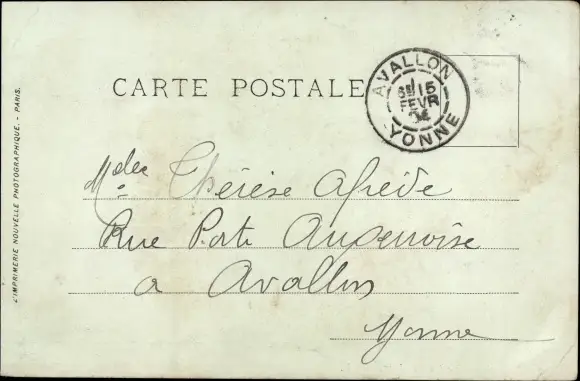 CARTE POSTALE
AVALLON
6E 15
FEVR
04
YONNE
L'IMPRIMERIE NOUVELLE PHOTOGRAPHIQUE. - PARIS.
Mdelle Thérèse
Rue Porte Auxerroise
a Avallon
Yonne